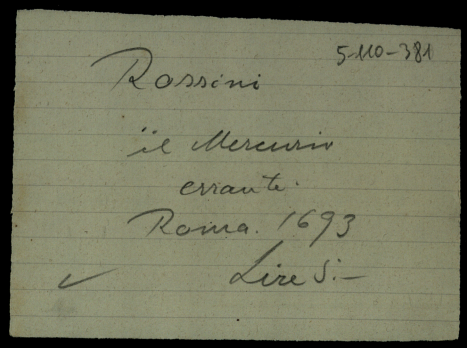 5-110-381
Rossini
il Mercurio
errante.
Roma. 1693
Lire 5.—